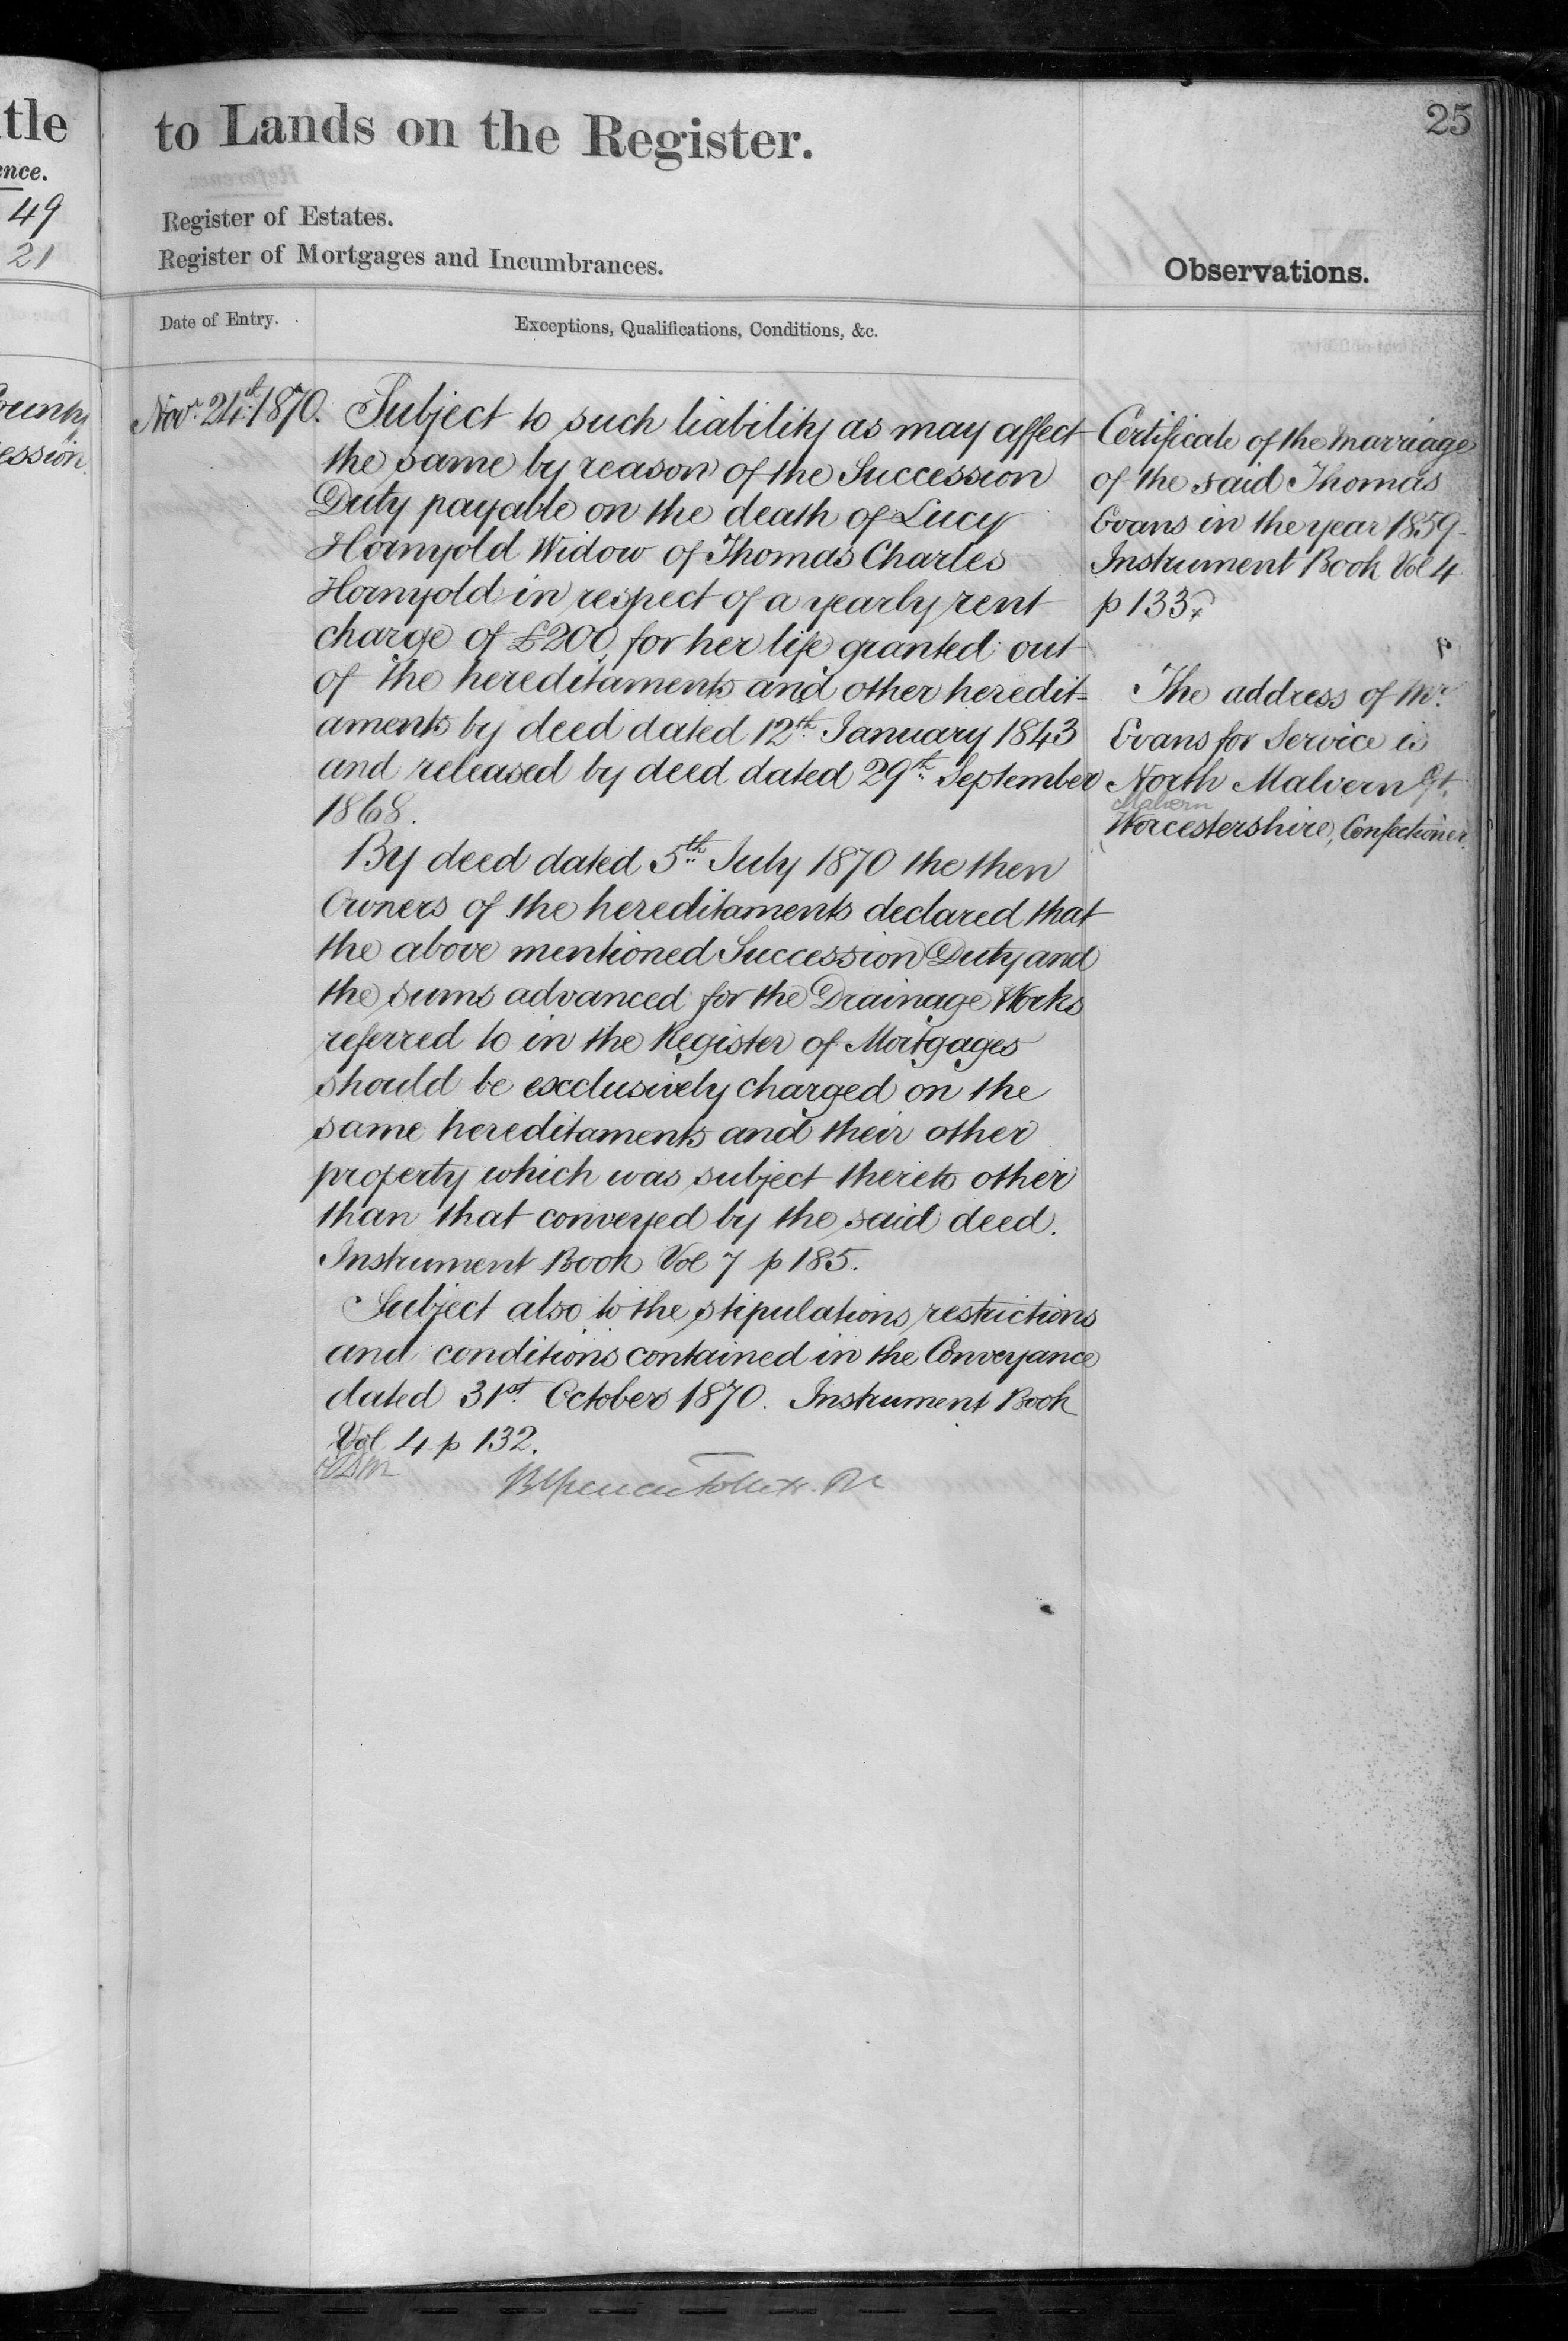 tle
ence.
49
21
ession.
to Lands on the Register.
25
Register of Estates.
Register of Mortgages and Incumbrances.
Observations.
Date of Entry.
Exceptions, Qualifications, Conditions, &c.
Nov.r 24th 1870.
Subject to such liability as may affect
the same by reason of the Succession
Duty payable on the death of Lucy
Hornyold Widow of Thomas Charles
Hornyold in respect of a yearly rent
charge of £200 for her life granted out
of the hereditaments and other heredit=
aments by deed dated 12th January 1843
and released by deed dated 29th September
1868.
By deed dated 5th July 1870 the then
Owners of the hereditaments declared that
the above mentioned Succession Duty and
the sums advanced for the Drainage Works
referred to in the Register of Mortgages
should be exclusively charged on the
same hereditaments and their other
property which was subject thereto other
than that conveyed by the said deed.
Instrument Book Vol 7 p 185.
Subject also to the stipulations restrictions
and conditions contained in the Conveyance
dated 31st October 1870. Instrument Book
Vol 4 p 132.
Certificate of the Marriage
of the said Thomas
Evans in the year 1859-
Instrument Book Vol 4
p 133
The address of Mr.
Evans for Service is
North Malvern Gt.
Malvern
Worcestershire, Confectioner.